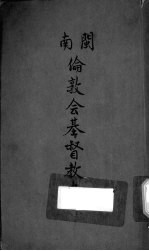 閩南
倫敦会基督教